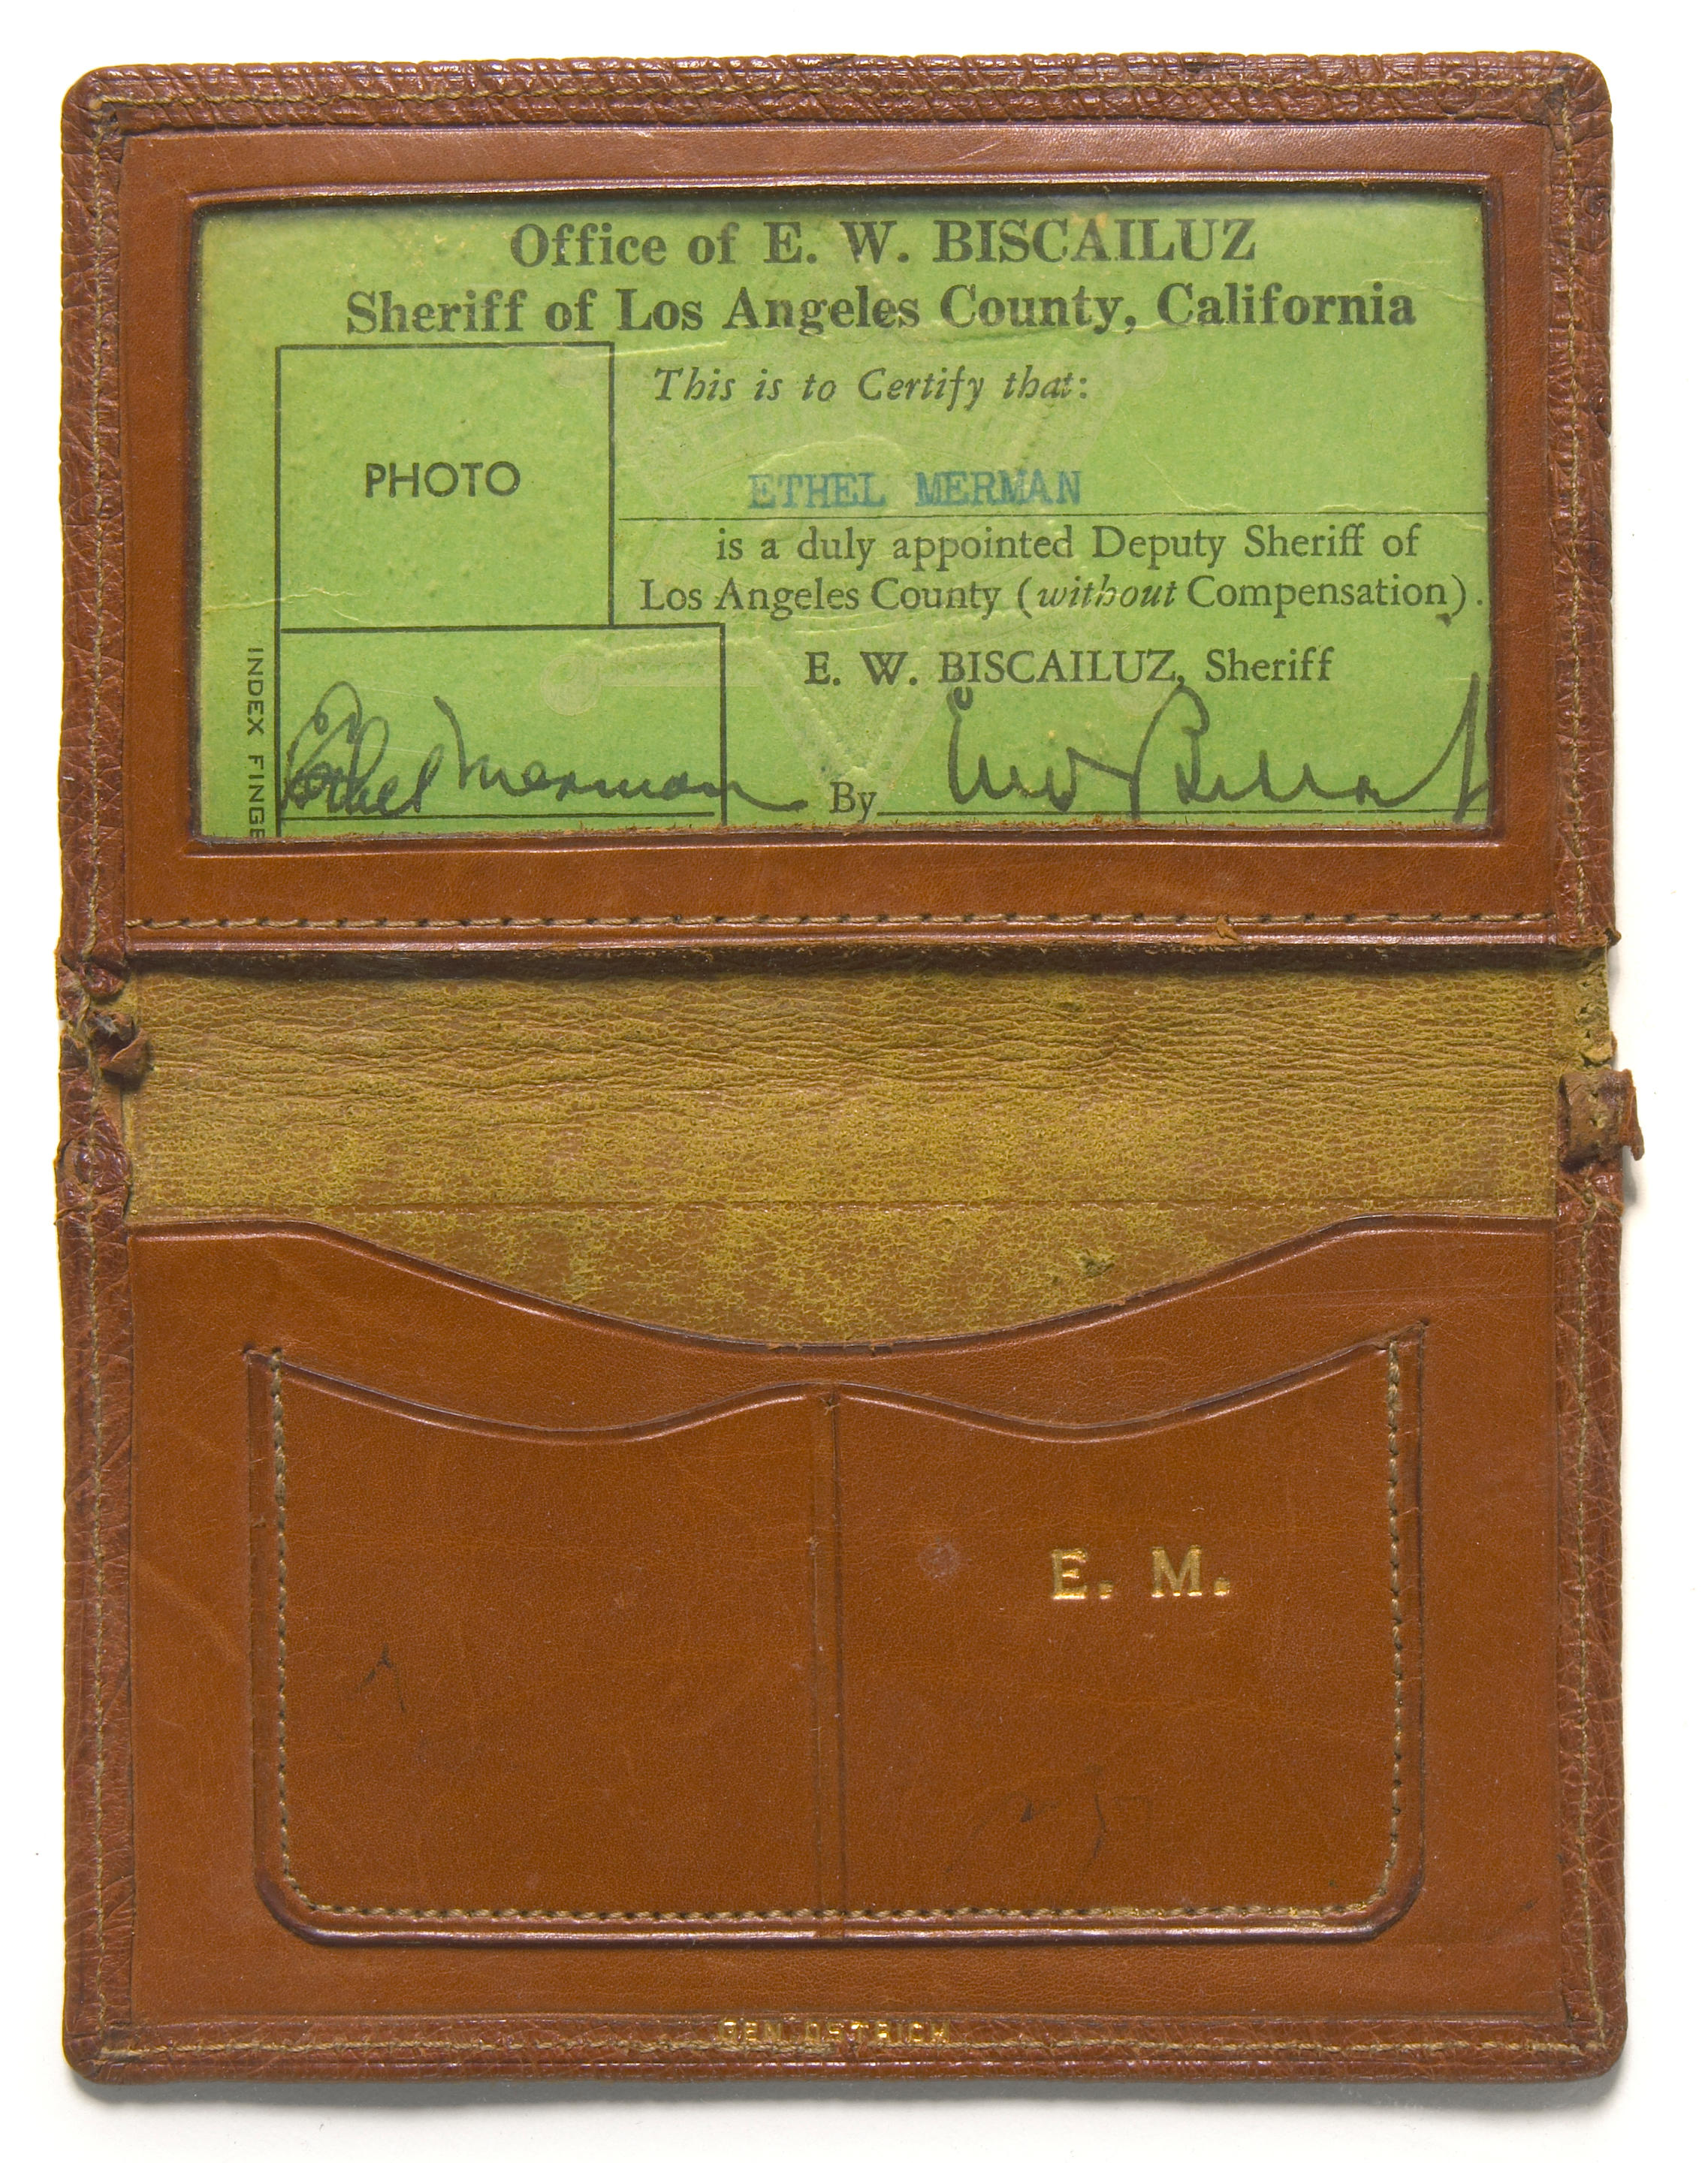 Office of E. W. BISCAILUZ
Sheriff of Los Angeles County, California
This is to Certify that:
PHOTO
ETHEL MERMAN
is a duly appointed Deputy Sheriff of
Los Angeles County (without Compensation).
E. W. BISCAILUZ, Sheriff
INDEX FINGE
Ethel Merman
By
E. M.
GEN. OSTRICH